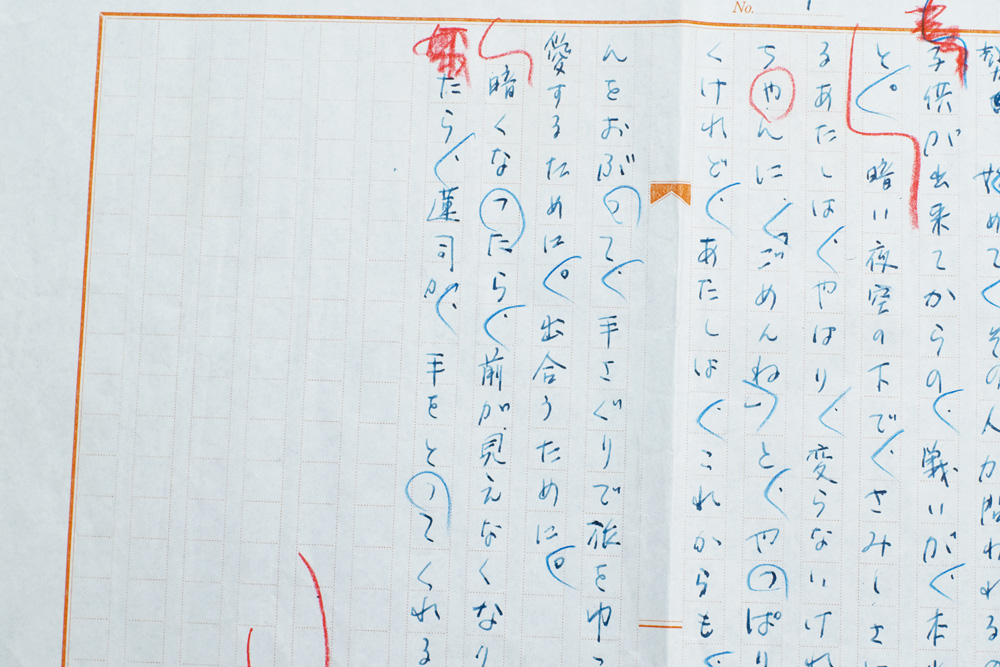 No. 1
始めて、その人が問われる
子供が出来てからの、戦いが、本
と。暗い夜空の下で、さみしさに
るあたしは、やはり、変らないけれ
ちゃんに、「ごめんね」と、やっぱり
くけれど、あたしは、これからも、
んをおぶって、手さぐりで旅をゆっ
愛するために。出合うために。
暗くなったら、前が見えなくなり
たら、蓮司が、手をとってくれる